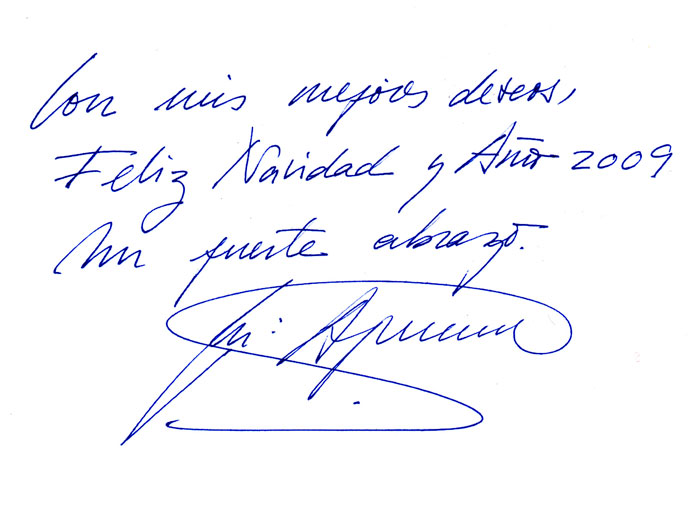 Con mis mejores deseos,
Feliz Navidad y Año 2009
Un fuerte abrazo.